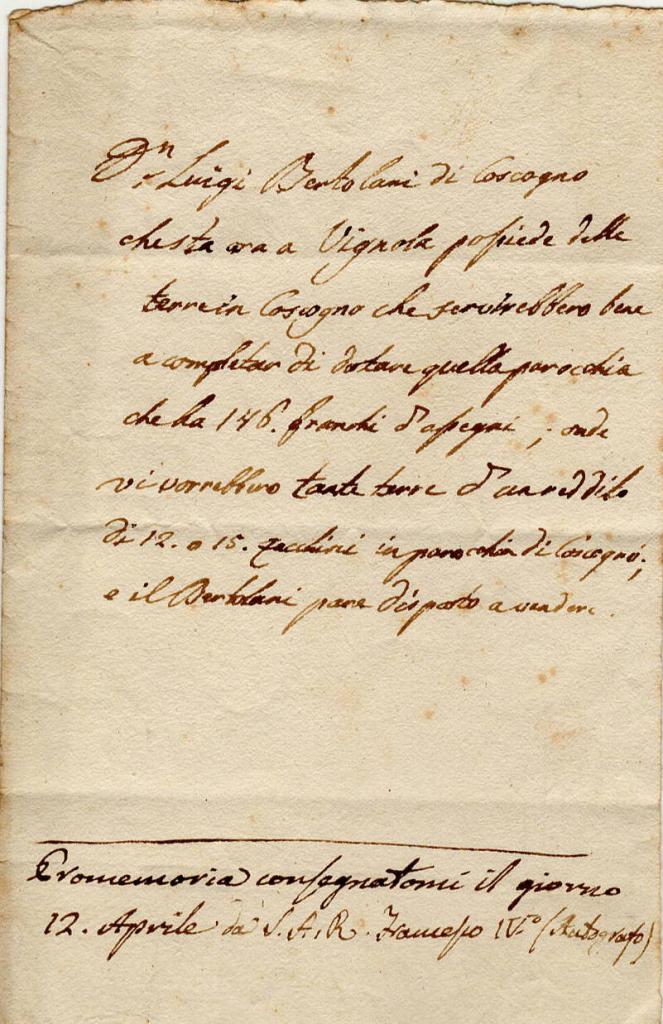 Dn Luigi Bertolani di Coscogno
che sta ora a Vignola possiede delle
terre in Coscogno che servirebbero bene
a completar di dotare quella parocchia
che ha 146. franchi d'assegni; onde
vi vorrebbero tante terre d'un reddito
di 12. o 15. zecchini in parochia di Coscogno;
e il Bertolani pare disposto a vendere.
Promemoria consegnatomi il giorno
12. Aprile da S. A. R. Francesco IV.o (Autografo)